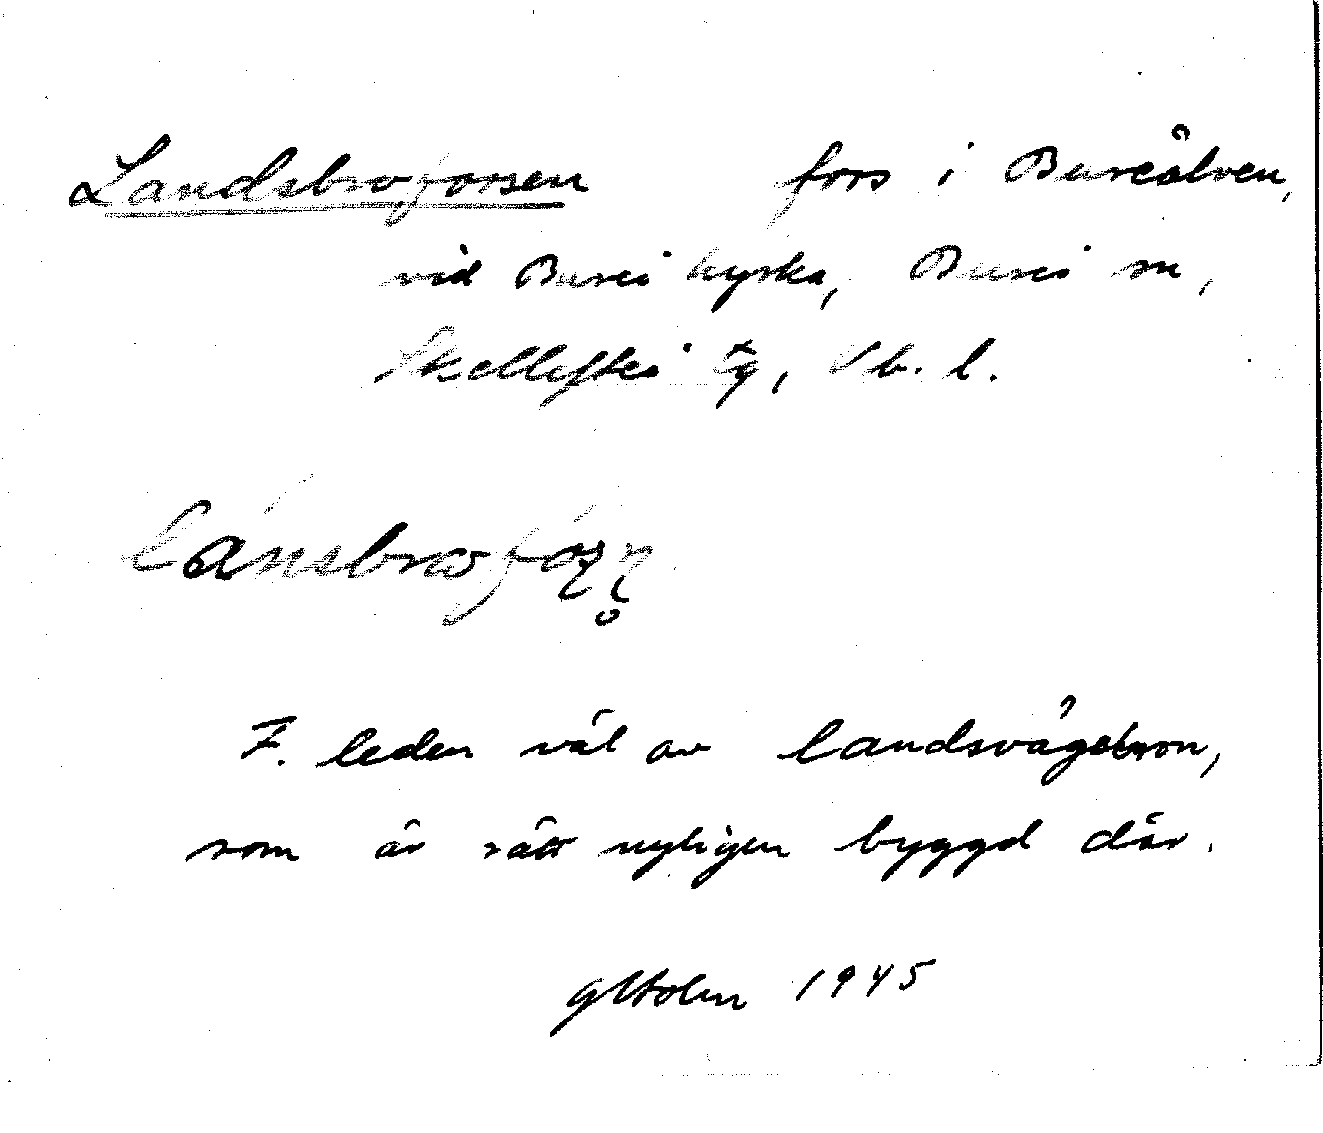 Landsbroforsen fors i Bureälven,
vid Bureå kyrka, Bureå sn,
Skellefteå tg, Vb. l.
lánsbrofóṣṇ̥
F. leden väl av landsvägsbron,
som är rätt nyligen byggd där.
1945